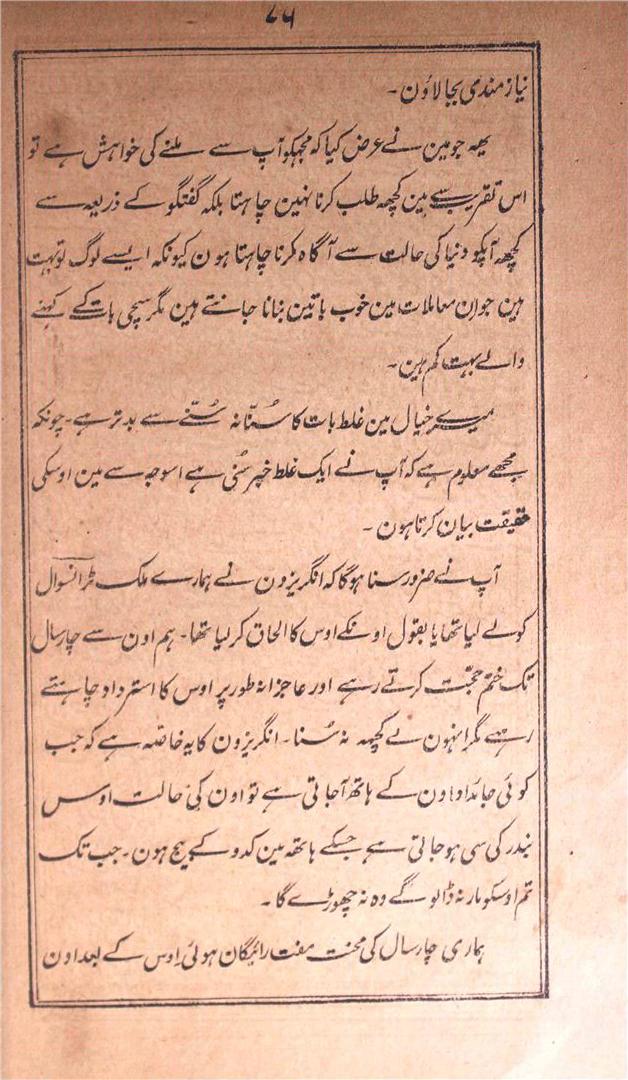 ۷۶
نیازمندی بجالاؤن۔
یھہ جومین نے عرض کیا کہ مجہکو آپ سے ملنے کی خواہش ہے تو
اس تقریب سے مین کچھہ طلب کرنا نہین چاہتا بلکہ گفتگو کے ذریعہ سے
کچھہ آپکو دنیا کی حالت سے آگاہ کرنا چاہتا ہون کیونکہ ایسے لوگ تو بہت
ہین جو ان معاملات مین خوب باتین بنانا جانتے ہین مگر سچی بات کے کہنے
والے بہت کم ہین۔
میرے خیال مین غلط بات کا سُننا نہ سُننے سے بدتر ہے۔ چونکہ
مجھے معلوم ہے کہ آپ نے ایک غلط خبر سُنی ہے اسوجہ سے مین اوسکی
حقیقت بیان کرتا ہون۔
آپ نے ضرور سنا ہوگا کہ انگریزون نے ہمارے ملک ٹرانسوال
کو لے لیا تھا یا بقول اونکے اوس کا الحاق کر لیا تھا۔ ہم اون سے چار سال
تک ختم حجّت کرتے رہے اور عاجزانہ طور پر اوس کا استرداد چاہتے
رہے مگر انہون نے کچھہ نہ سُنا۔ انگریزون کا یہ خاصّہ ہے کہ جب
کوئی جائداد اون کے ہاتھ آجاتی ہے تو اون کی حالت اوس
بندر کی سی ہو جاتی ہے جسکے ہاتھہ مین کدو کے بیج ہون۔ جب تک
تم اوسکو مار نہ ڈالو گے وہ نہ چھوڑے گا۔
ہماری چار سال کی محنت مفت رائیگان ہوئی اوس کے بعد اون